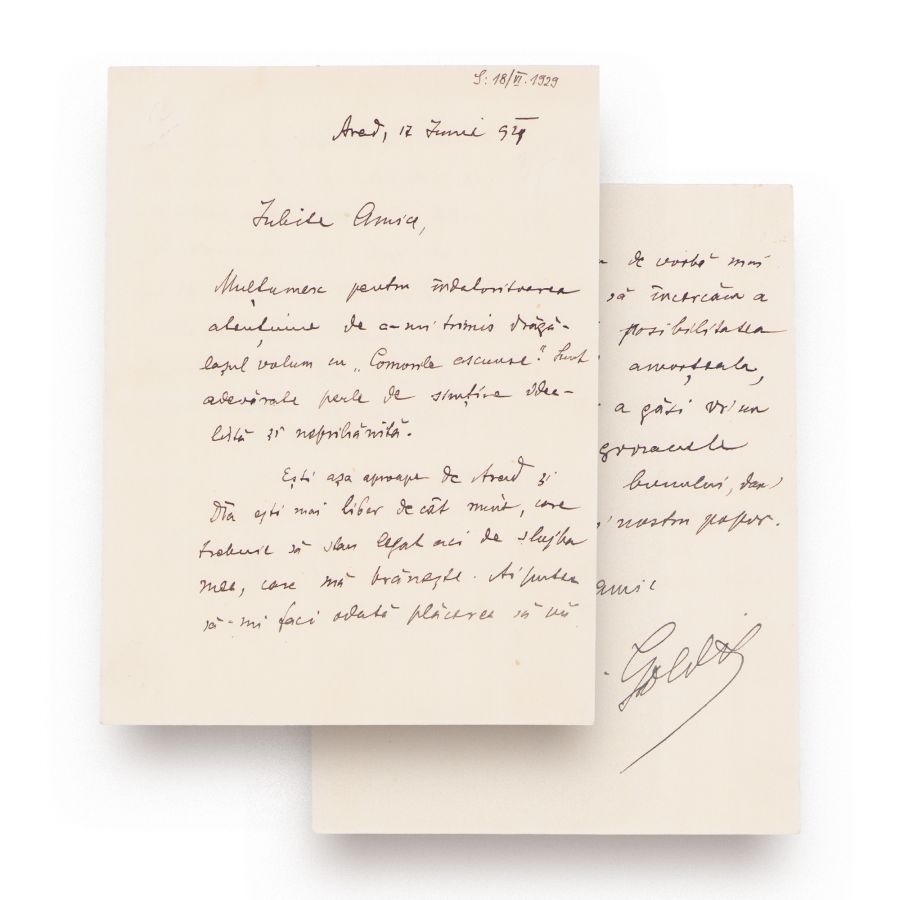 S: 18/VI. 1929
Arad, 17 Iunie 929
Iubite Amice,
Mulțumesc pentru îndatoritoarea
atențiune de a-mi trimis drăgă-
lașul volum cu „Comorile ascunse". Sunt
adevărate perle de simțire idea-
listă și neprihănită.
Ești așa aproape de Arad și
Dta ești mai liber decât mine, care
trebuie să stau legat aci de slujba
mea, care mă hrănește. Ai putea
să-mi faci odată plăcerea să vii
de vorbă mai
să încercăm a
posibilitatea
amorțeala,
a găsi vr'un
bunului, dar
nostru popor.
amic
Goldiș